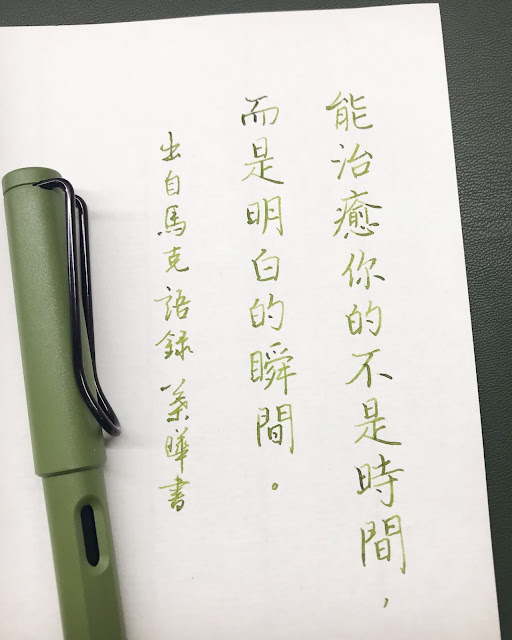 能治癒你的不是時間，
而是明白的瞬間。
出自馬克語錄 葉曄書